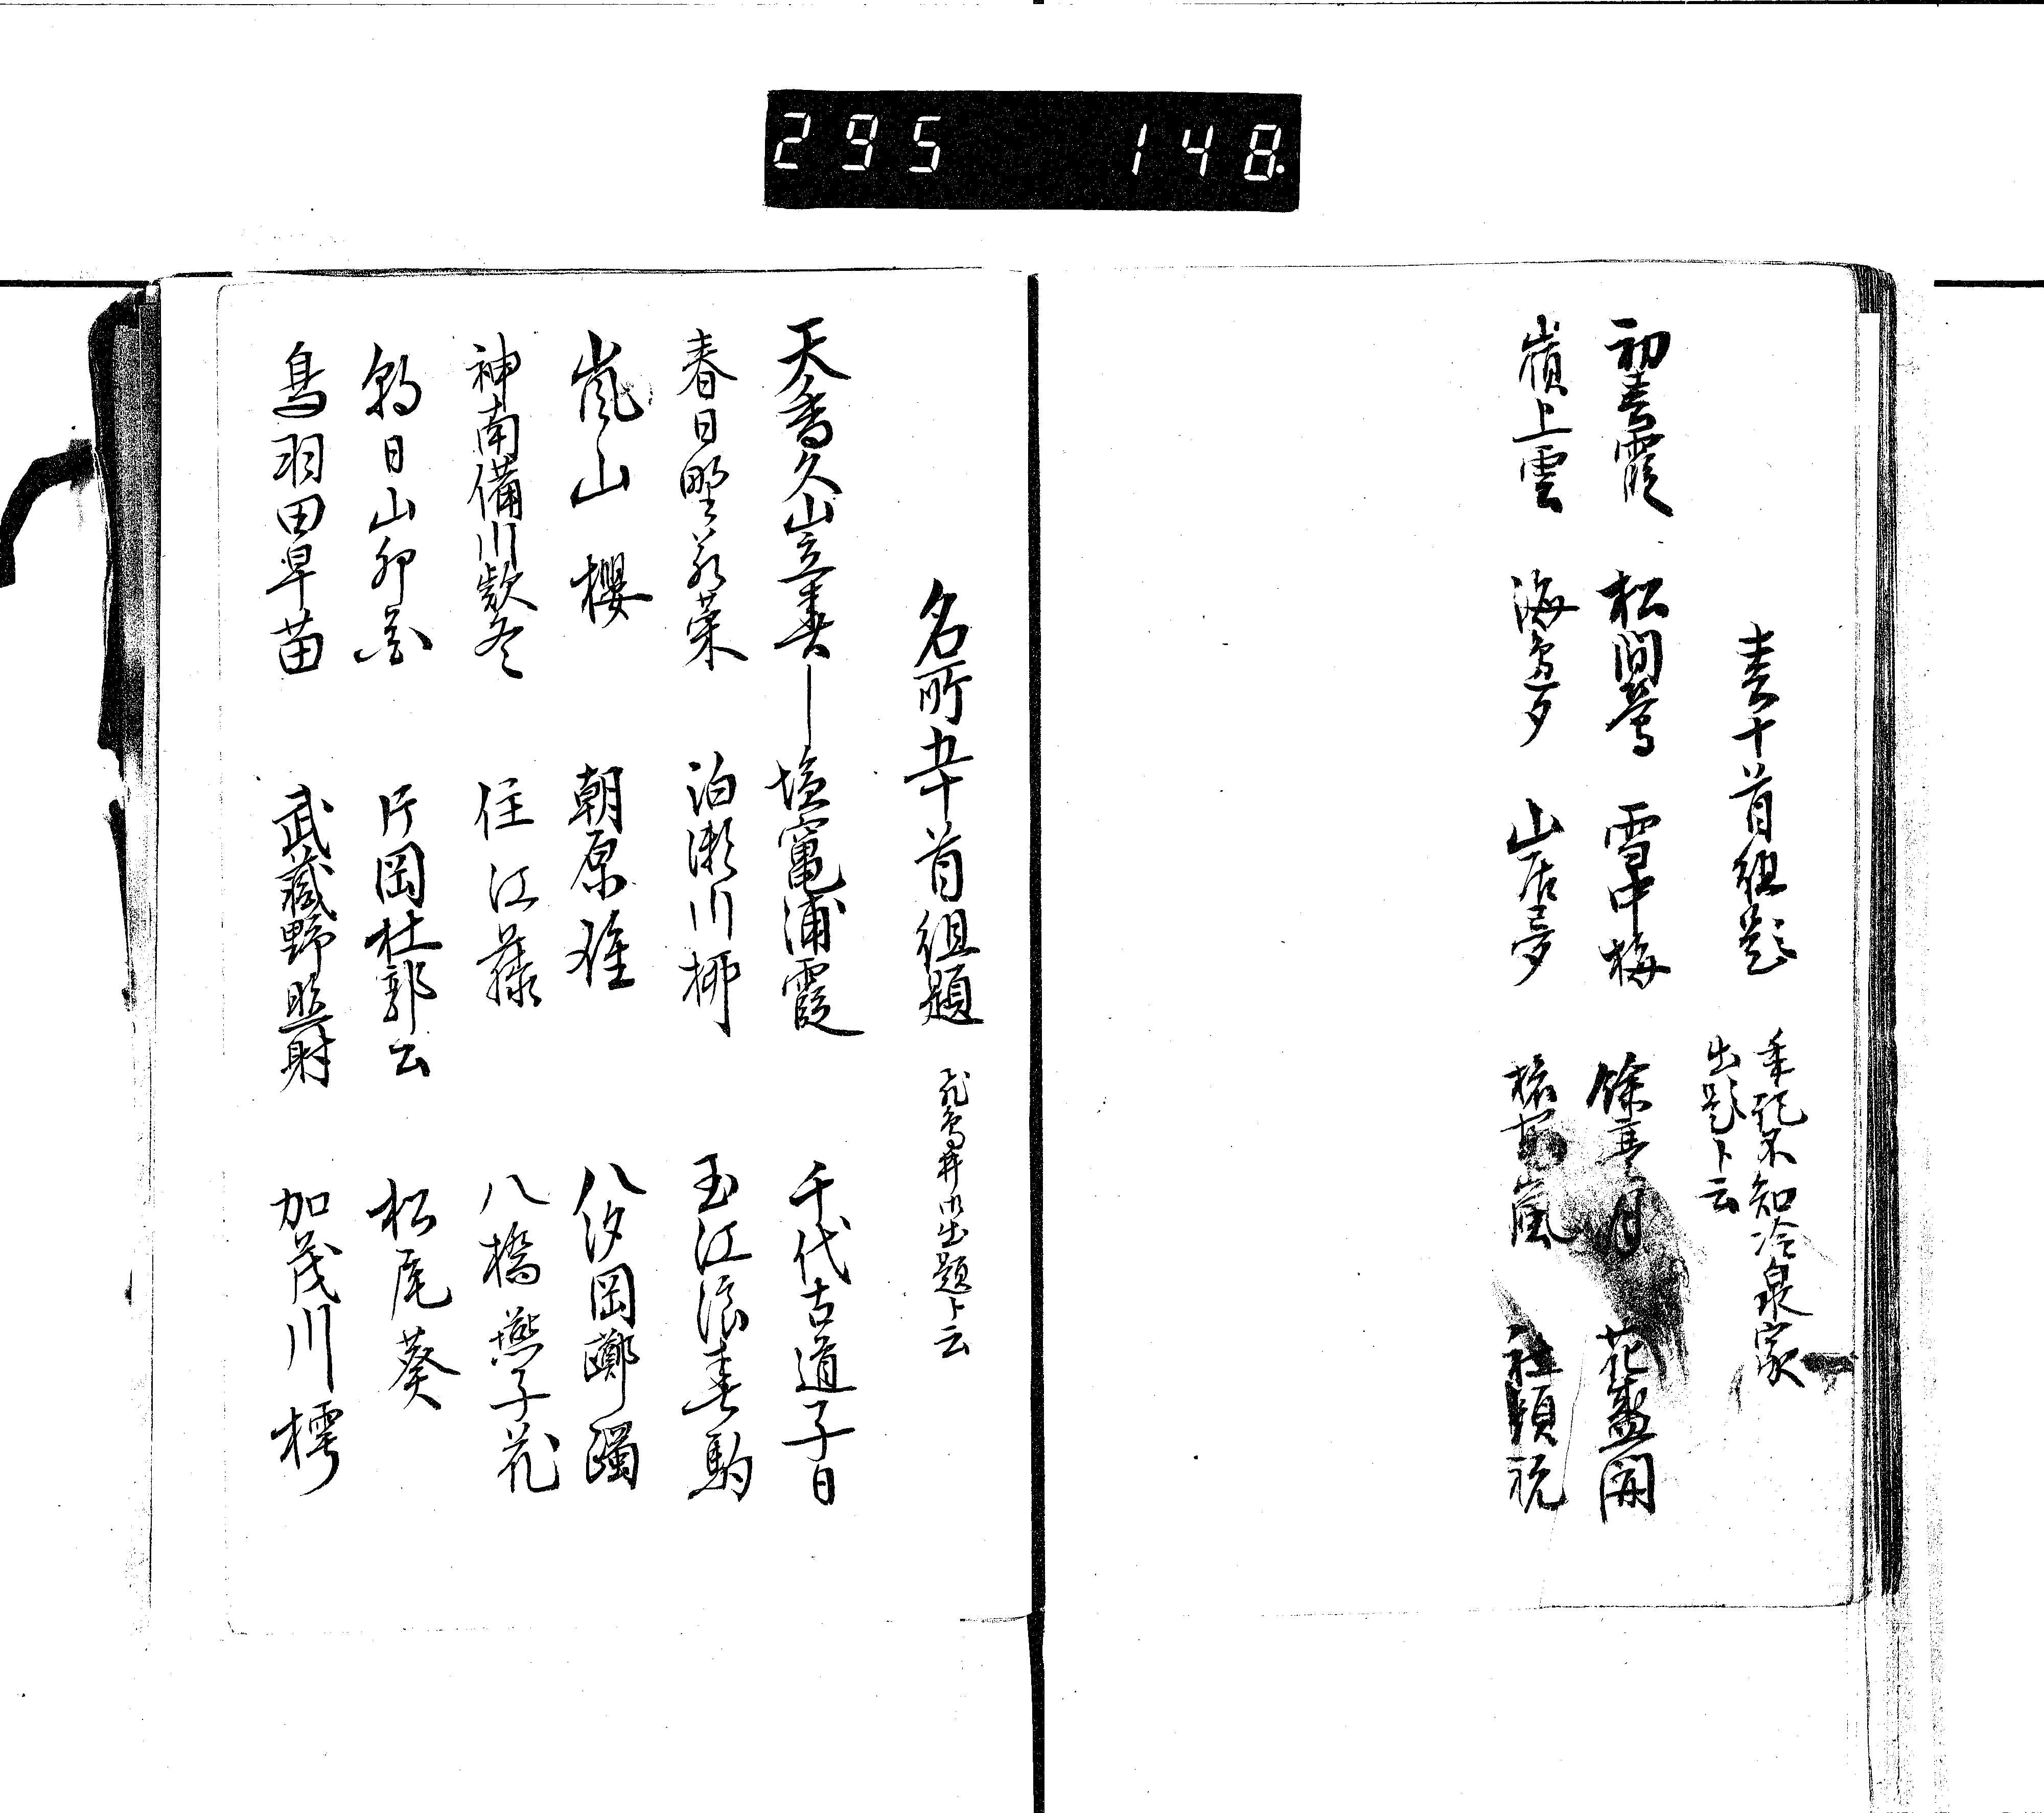 295 148
春十首組題
奉現不知冷泉家
出題ト云
初春霞 松間鶯 雪中梅 餘寒月 花盛開
嶺上雲 海邊夕 山居夢 嵐 社頭祝
名所五十首組題 飛鳥井出題ト云
天香久山立春 塩竃浦霞 千代古道子日
春日野若菜 泊瀬川柳 玉江浪春駒
嵐山櫻 朝原雉 八汐岡躑躅
神南備川款冬 住江藤 八橋燕子花
朝日山卯花 片岡杜郭公 松尾葵
鳥羽田早苗 武蔵野照射 加茂川樗